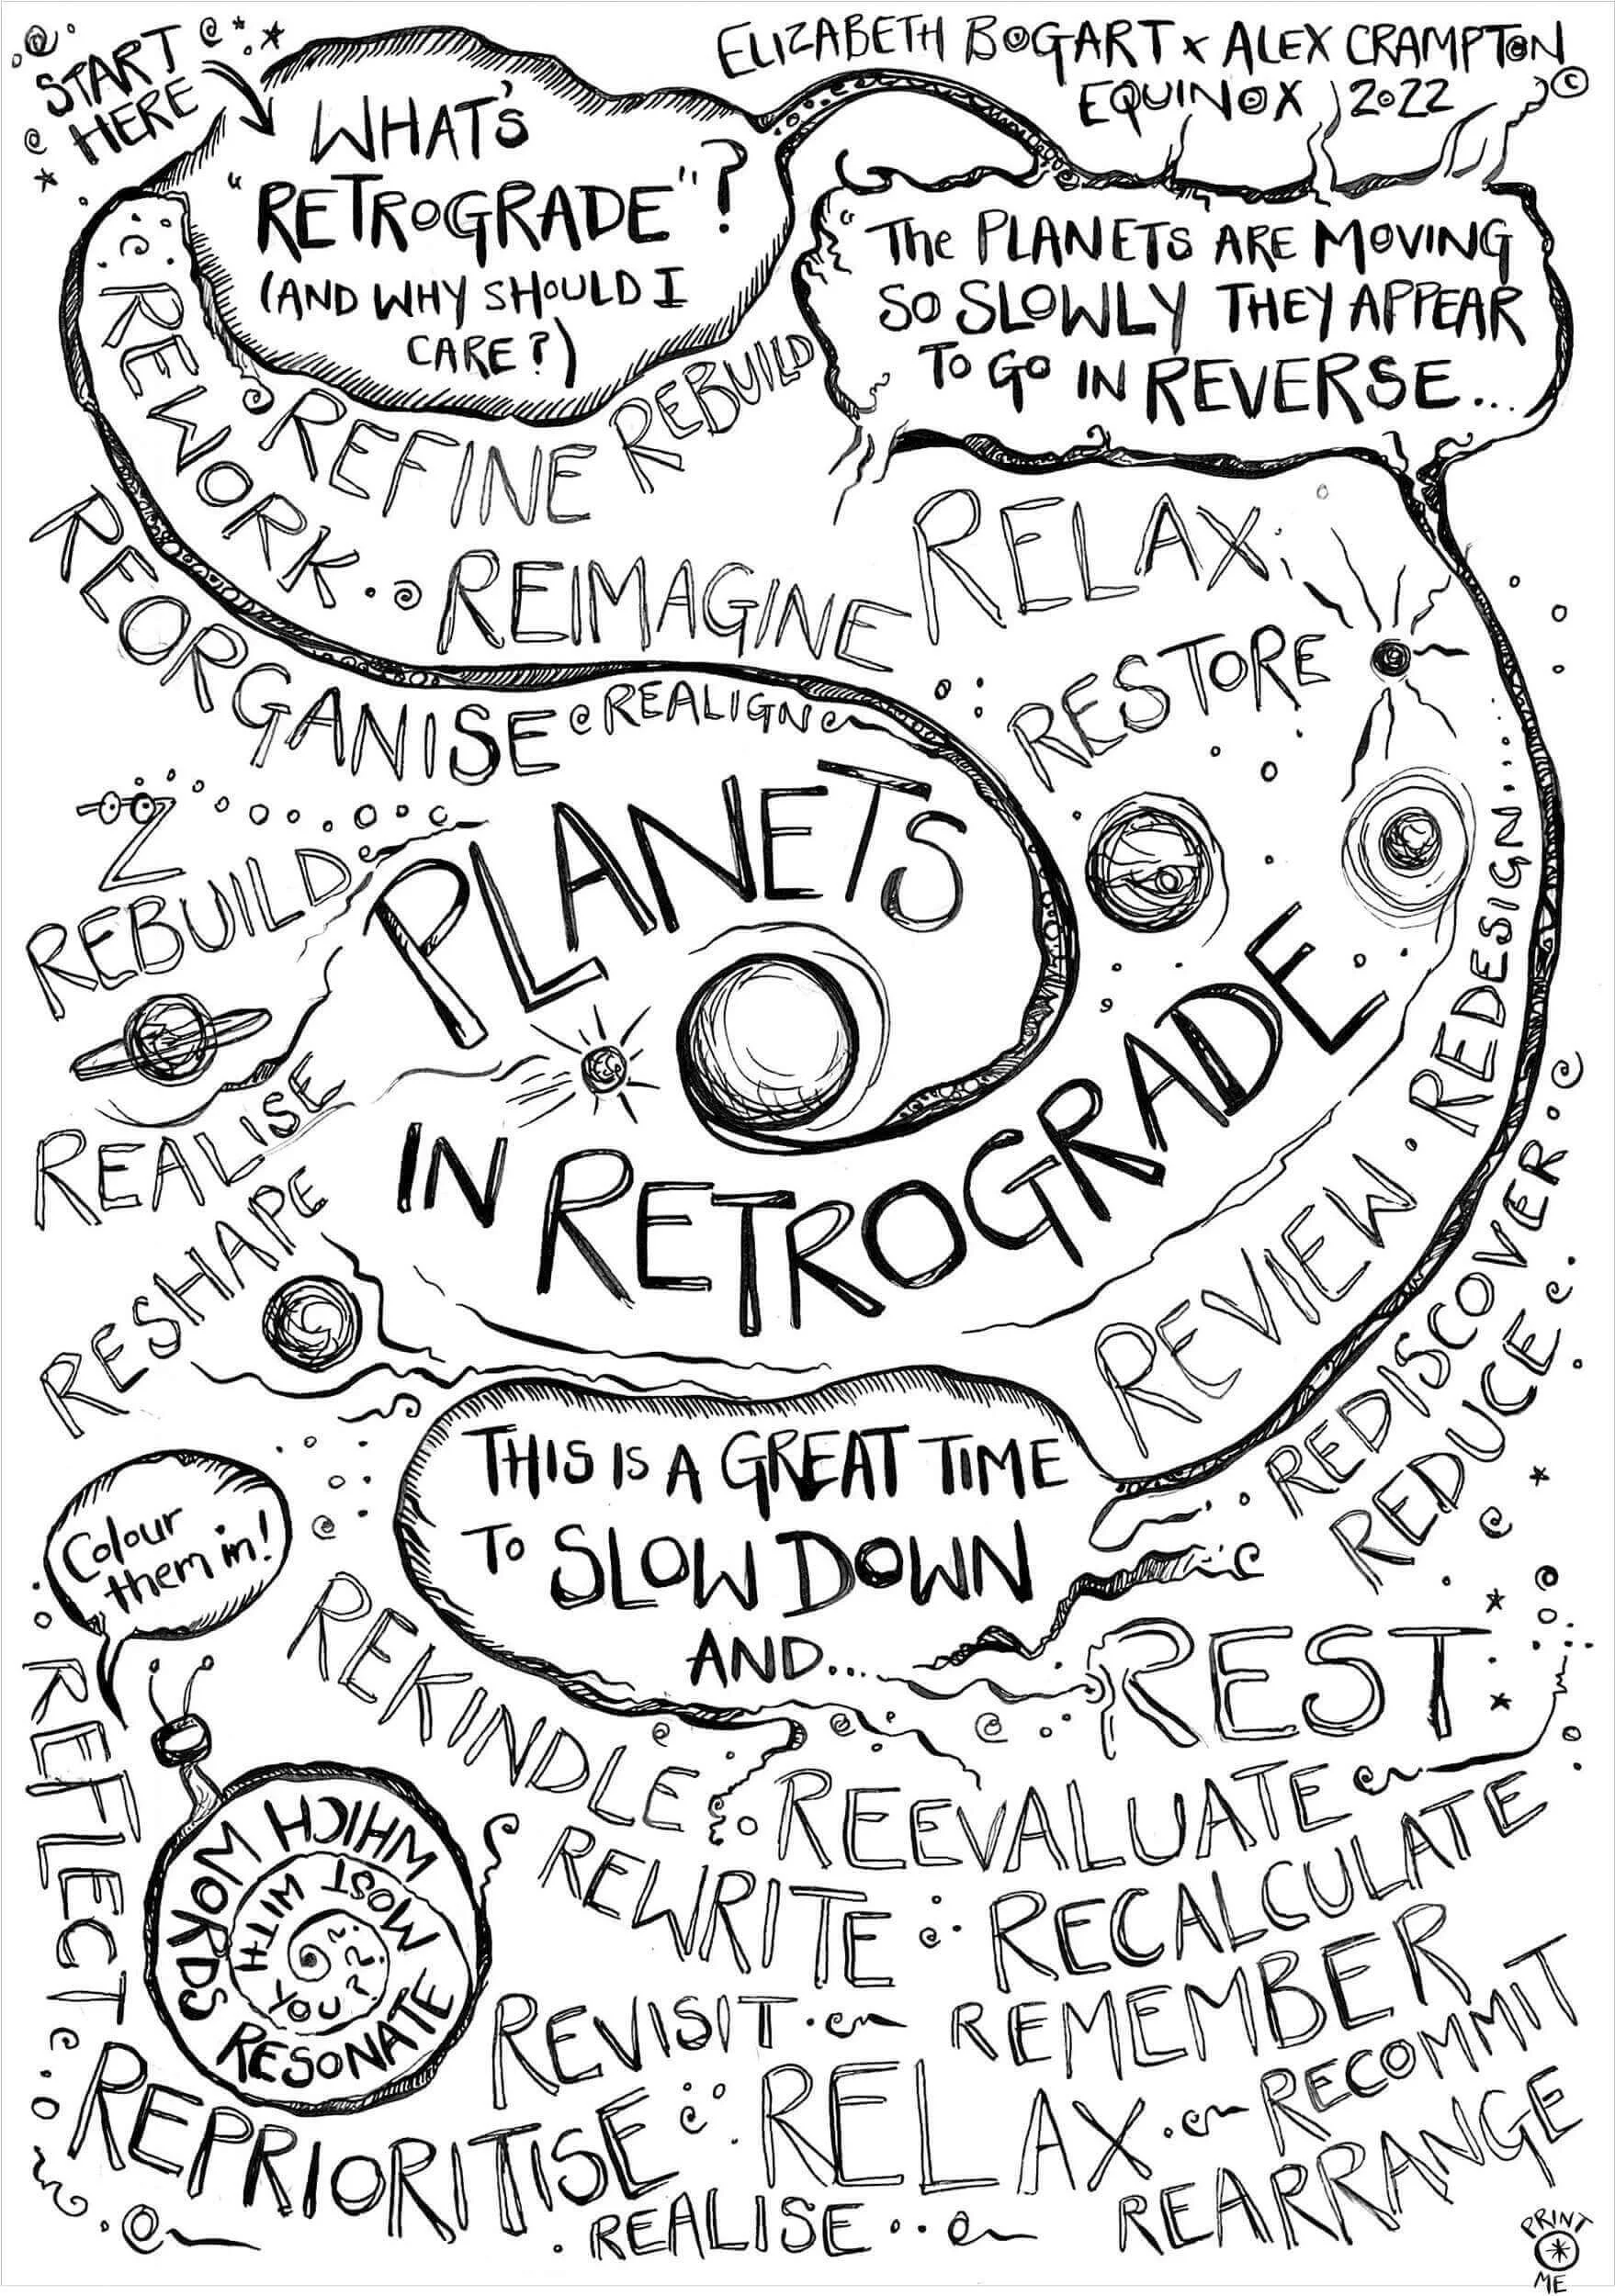 START
HERE
ELIZABETH BOGART x ALEX CRAMPTON
EQUINOX 2022 ©
WHAT'S
"RETROGRADE"?
(AND WHY SHOULD I
CARE?)
"The PLANETS ARE MOVING
SO SLOWLY THEY APPEAR
TO GO IN REVERSE...
REWORK
REFINE
REBUILD
REORGANISE
REIMAGINE
RELAX
REALIGN
RESTORE
Z
REBUILD
PLANETS
IN RETROGRADE
REALISE
RESHAPE
REVIEW. REDESIGN...
REDISCOVER
REDUCE
THIS IS A GREAT TIME
TO SLOW DOWN
AND...
REST
Colour
them in!
REFLECT
REKINDLE
REEVALUATE
REWRITE
RECALCULATE
WHICH
WORDS
RESONATE
MOST WITH
YOU???
REVISIT
REMEMBER
RECOMMIT
REPRIORITISE
RELAX
REARRANGE
REALISE
PRINT
ME